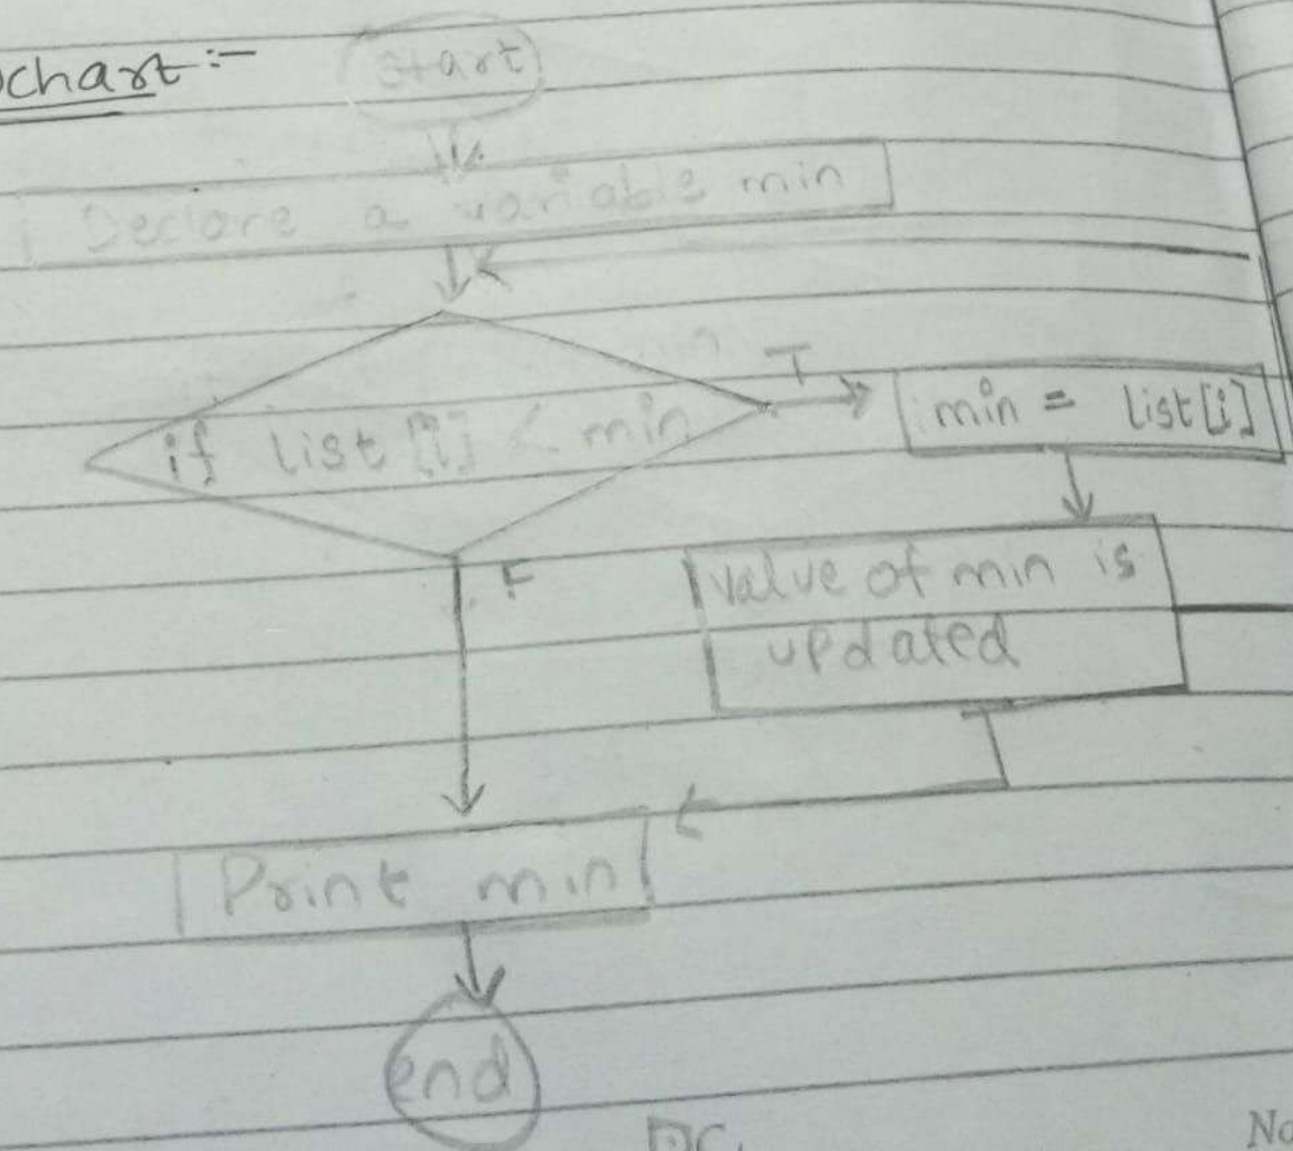 chart :-
Start
Declare a variable min
if list [i] < min
T
min = list[i]
F
value of min is
updated
Print min
end